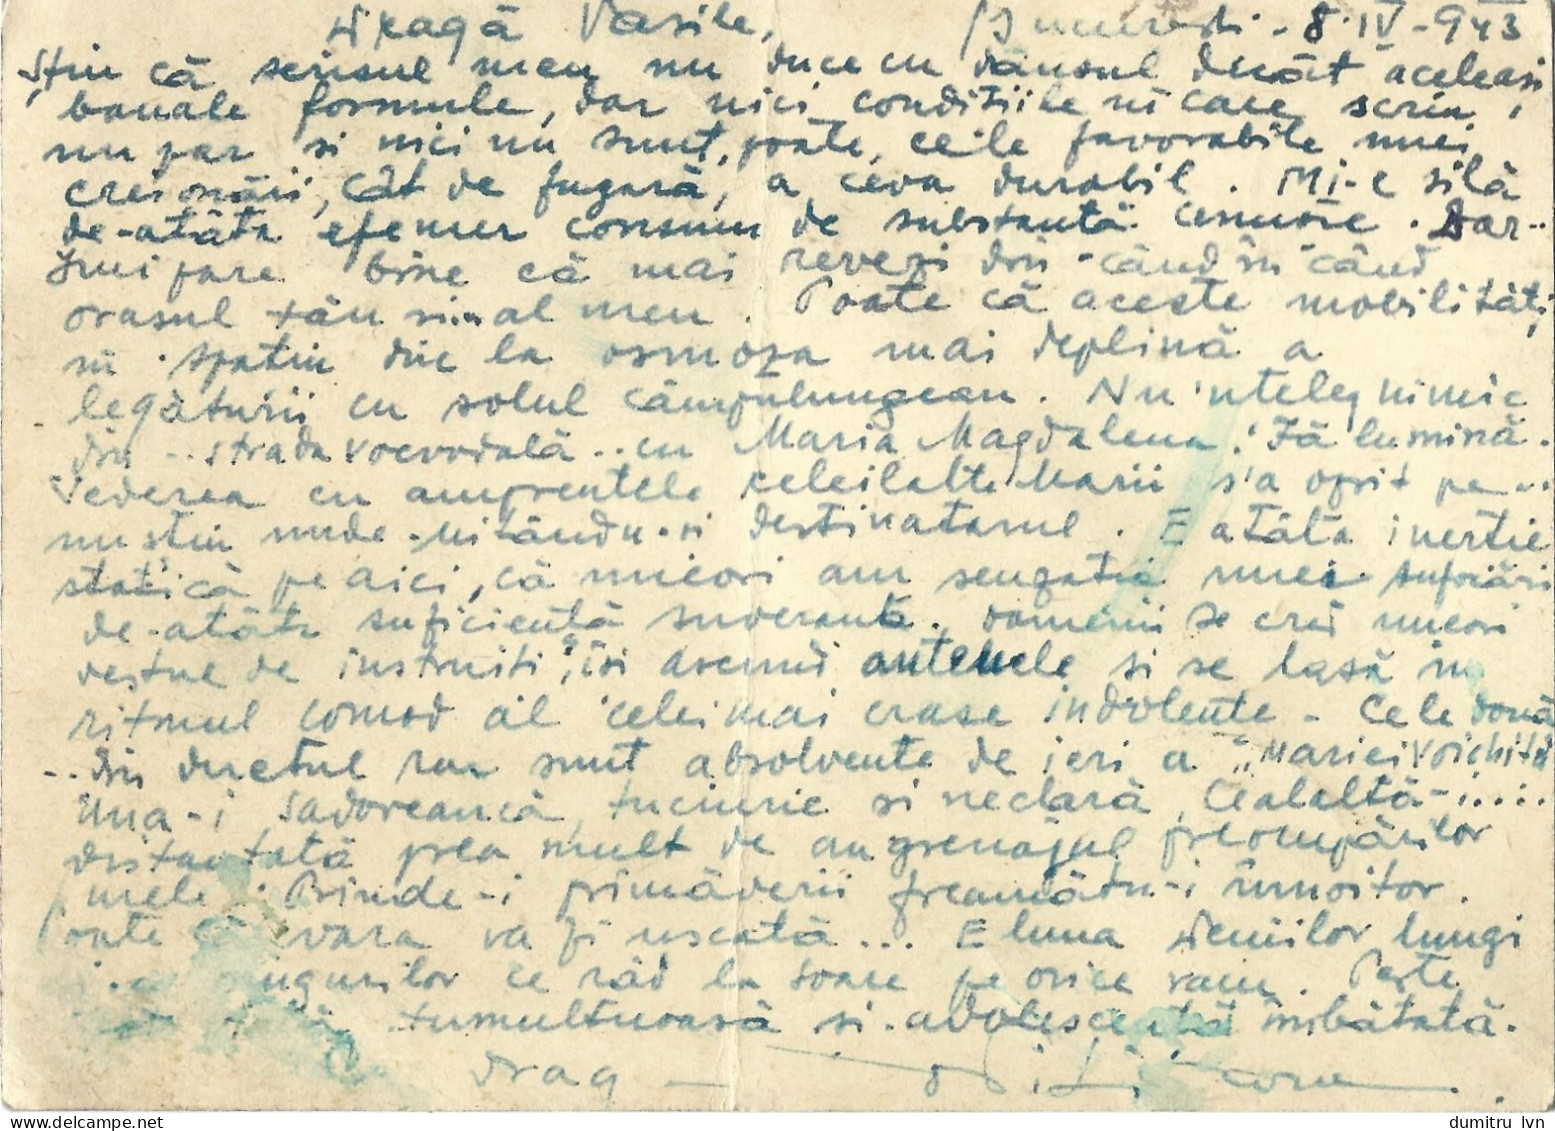 Dragă Vasile, București - 8.IV-943
Știu că scrisul meu nu duce cu dânsul decât aceleași
banale formule, dar nici condițiile în care scriu,
nu par și nici nu sunt, poate, cele favorabile unei
creionări, cât de fugară, a ceva durabil. Mi-e silă
de-atâta efemer consum de substanță cenușie. Dar..
îmi pare bine că mai revezi din când în când
orașul tău și..al meu. Poate că aceste mobilități
în spațiu duc la osmoza mai deplină a
legăturii cu solul câmpulungean. Nu 'nțeleg nimic
din .. strada voevodală .. cu Maria Magdalena! Fă lumină.
Vederea cu amprentele celeilalte Marii s'a oprit pe..
nu știu unde-uitându-și destinatarul. E atâta inerție
statică pe aici, că uneori am senzația unei
de-atâta suficiență suverană. Oamenii se cred uneori
destul de instruiți, își și se lasă în
ritmul comod al celei mai crase indolențe - Cele două
..din duetul sunt absolvente de ieri a "Mariei Voichița
Una-i Sadoreancă, tuciurie și neclară, Cealaltă-i....
distantată prea mult de angrenajul preocupărilor
mele. Prinde-i primăverii freamătu-i înnoitor.
Poate că vara va fi uscată... E luna deniilor lungi
și a mugurilor ce râd la soare pe orice ram. Paște
tumultuoasă și-adolescență îmbătată.
drag —